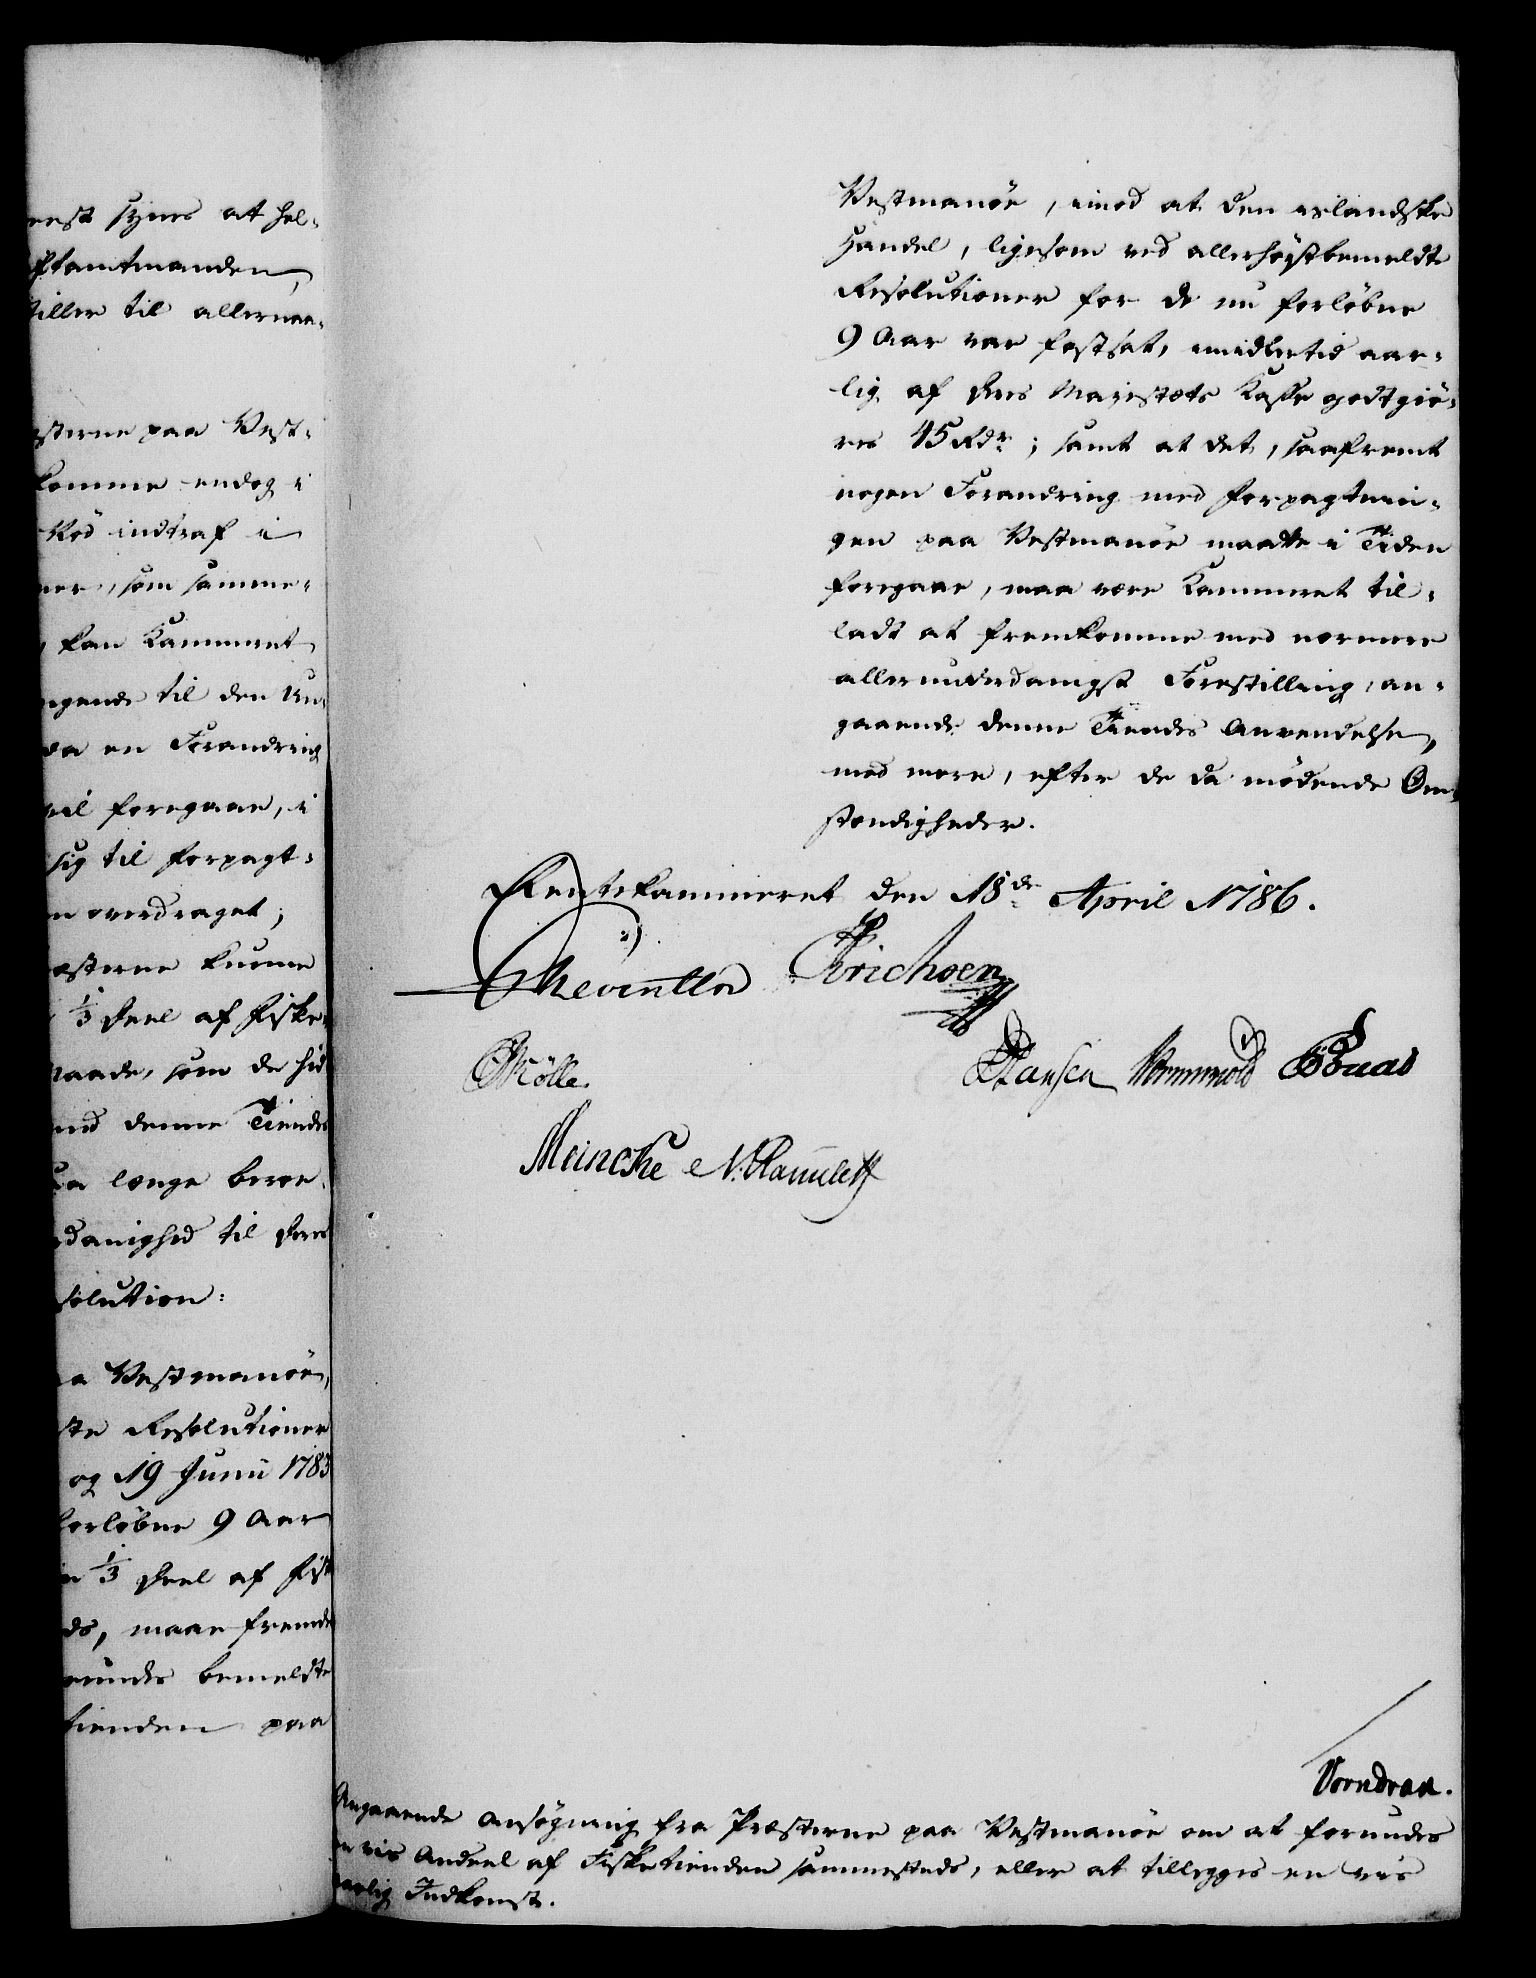 eest synes at hol-
ftamtmanden,
tiller til allernaa-
sterne paa Vest-
komme endog i
Kød indtraf i
ner, som samme-
kan Kammeret
gende til den Un-
da en Forandring
vil foregaae, i
sig til forpagt-
n overdraget;
æsterne kunne
1/3 Deel af Fiske-
Maade, som de hid
med denne Tiendes
saa længe beroe,
danighed til Deres
solution:
a Vestmanöe,
ste Resolutioner
og 19 Junii 1783
forløbne 9 Aar
n 1/3 Deel af Fisk
ds, maae fremde
undes bemeldte
tienden paa
Vestmanöe, imod at den islandske
Handel, ligesom ved allerhøystbemeldte
Resolutioner for de nu forløbne
9 Aar var fastsat, imidlertid aar-
lig af Deres Majestæts Kasse godtgiö-
res 45 Rdr; samt at det, saafremt
nogen Forandring med Forpagtnin-
gen paa Vestmanöe maatte i Tiden
foregaae, maa være Kammeret til-
ladt at fremkomme med nærmere
allerunderdanigst Forestilling, an-
gaaende denne Tiendes Anvendelse,
med mere, efter de da mødende Om-
stændigheder.
Rentekammeret den 18de April 1786.
Reventlov Erichsen
Mölle. Hansen Wormskiold
Meincke N. Ramlett
Vorndran.
Angaaende Ansøgning fra Præsterne paa Vestmanöe om at forundes
en vis Andeel af Fisketienden sammesteds, eller at tillegges en vis
aarlig Indkomst.